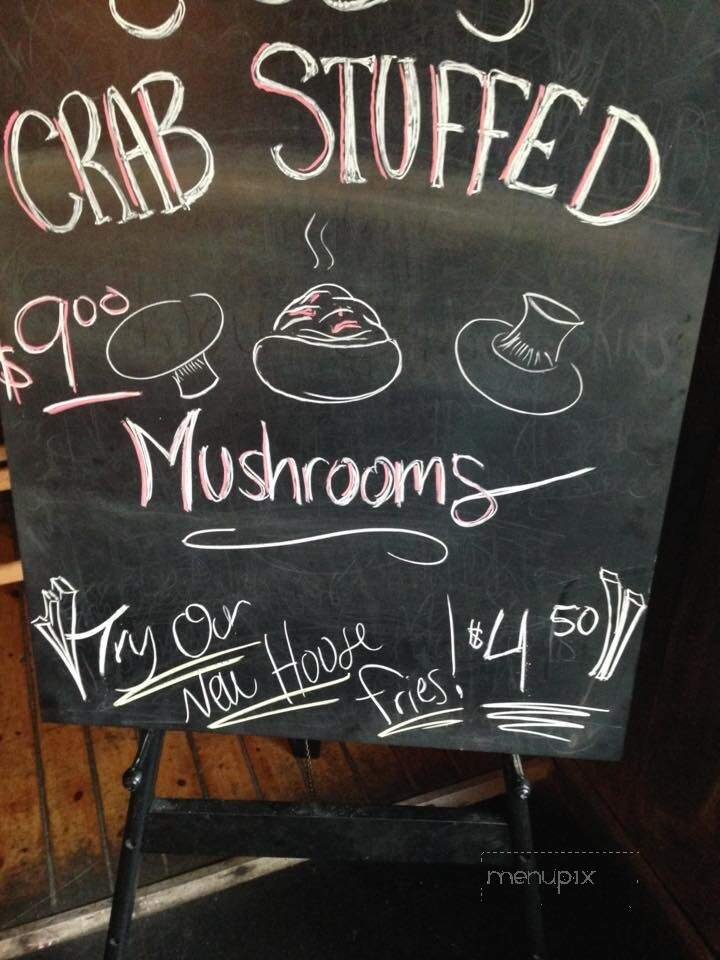 CRAB STUFFED
$9.00
Mushrooms
Try Our
New House
fries! $4.50
menupix